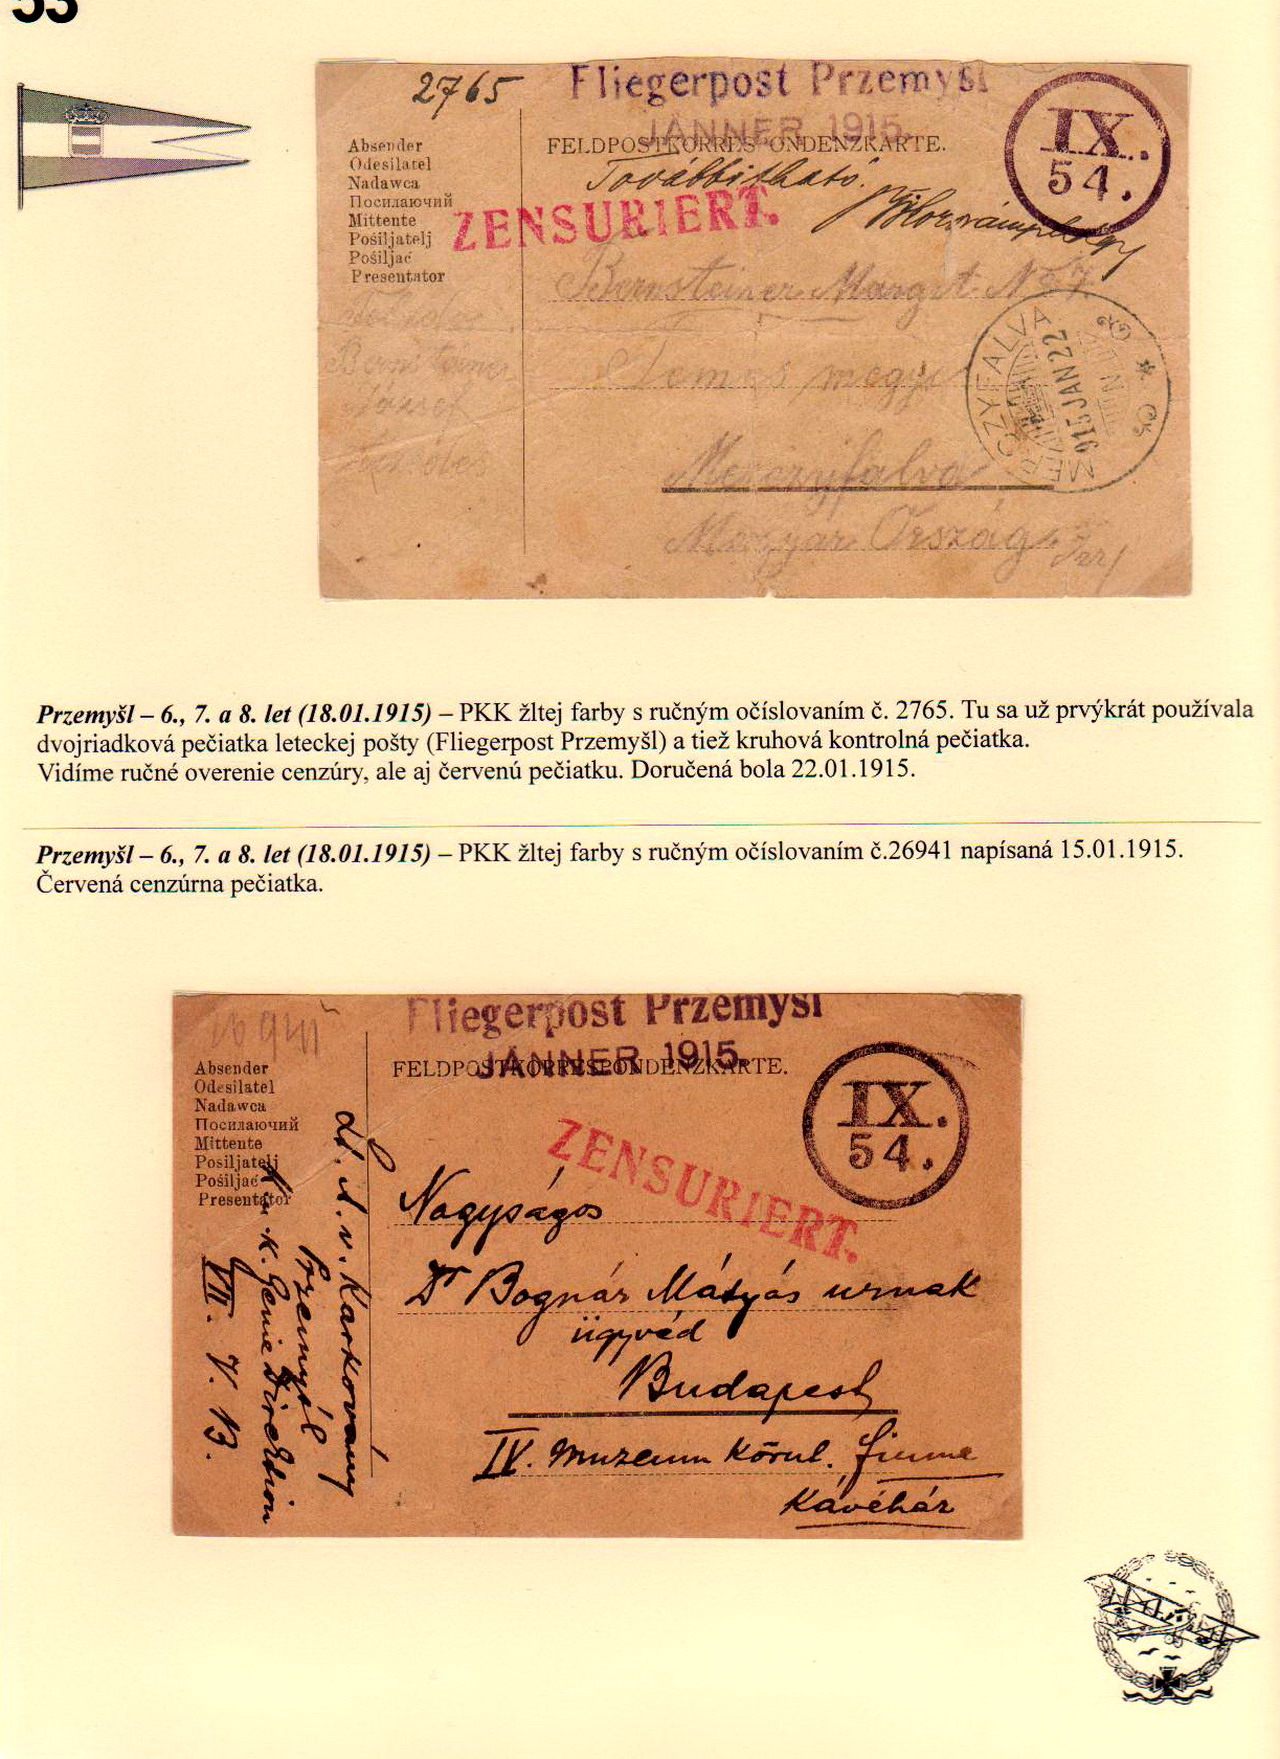 53
2765
Fliegerpost Przemyśl
JÄNNER 1915.
IX.
54.
FELDPOSTKORRESPONDENZKARTE.
Absender
Odesílatel
Nadawca
Посилаючий
Mittente
Pošiljatelj
Pošiljač
Presentator
Továbbitható.
ZENSURIERT.
Bernsteiner Margit
Temes megye
Merczyfalva
Magyar Ország
Bernsteiner
József
MERCZYFALVA
915 JAN 22
Przemyšl – 6., 7. a 8. let (18.01.1915) – PKK žltej farby s ručným očíslovaním č. 2765. Tu sa už prvýkrát používala
dvojriadková pečiatka leteckej pošty (Fliegerpost Przemyšl) a tiež kruhová kontrolná pečiatka.
Vidíme ručné overenie cenzúry, ale aj červenú pečiatku. Doručená bola 22.01.1915.
Przemyšl – 6., 7. a 8. let (18.01.1915) – PKK žltej farby s ručným očíslovaním č.26941 napísaná 15.01.1915.
Červená cenzúrna pečiatka.
26941
Fliegerpost Przemyśl
JÄNNER 1915.
IX.
54.
FELDPOSTKORRESPONDENZKARTE.
Absender
Odesílatel
Nadawca
Посилаючий
Mittente
Pošiljatelj
Pošiljač
Presentator
ZENSURIERT.
Nagyságos
Dr Bognár Mátyás urnak
ügyvéd
Budapest
IV. Muzeum Körul. Fiume
Kávéház
Lt. A. v. Karkovány
Przemyśl
K. u. K. Genie Direktion
VII. V. 13.